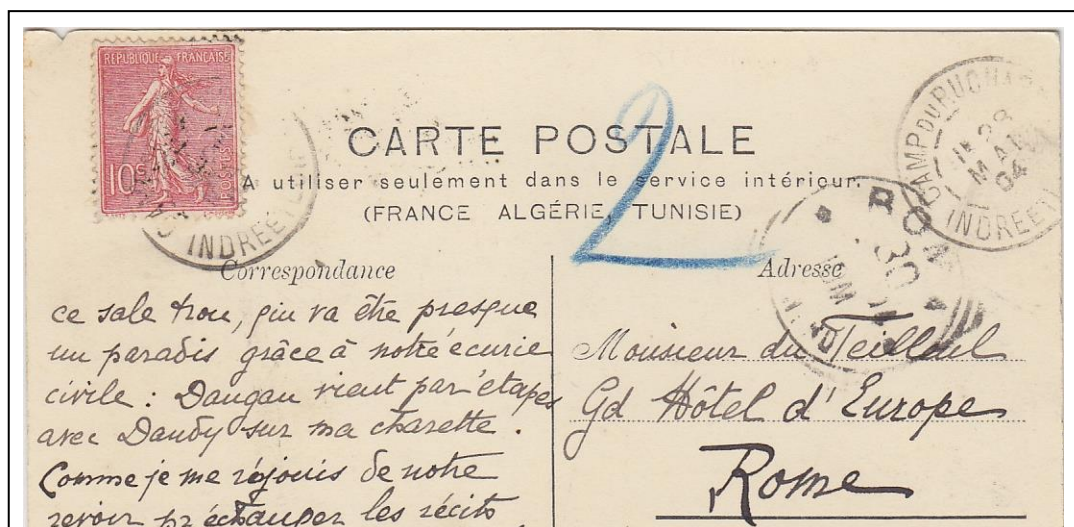 REPUBLIQUE FRANÇAISE
10c
INDRE ET L
CARTE POSTALE
A utiliser seulement dans le service intérieur.
(FRANCE ALGÉRIE, TUNISIE)
2
CAMP DU RUCHARD
28
MAI
04
INDRE ET
ROMA
30
Correspondance
ce sale trou, qui va être presque
un paradis grâce à notre écurie
civile : Daugan vient par étapes
avec Dandy sur ma charette.
Comme je me réjouis de notre
revoir pr échanger les récits
Adresse
Monsieur du
Gd Hôtel d'Europe
Rome